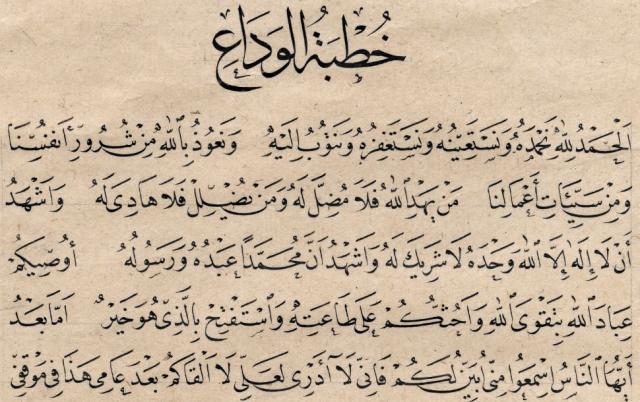 خُطْبَةُ الْوَدَاعِ
الْحَمْدُ لِلّٰهِ نَحْمَدُهُ وَنَسْتَعِينُهُ وَنَسْتَغْفِرُهُ وَنَتُوبُ إِلَيْهِ وَنَعُوذُ بِاللّٰهِ مِنْ شُرُورِ أَنْفُسِنَا
وَمِنْ سَيِّئَاتِ أَعْمَالِنَا مَنْ يَهْدِ اللّٰهُ فَلَا مُضِلَّ لَهُ وَمَنْ يُضْلِلْ فَلَا هَادِيَ لَهُ وَاَشْهَدُ
أَنْ لَا إِلٰهَ إِلَّا اللّٰهُ وَحْدَهُ لَا شَرِيكَ لَهُ وَاَشْهَدُ اَنَّ مُحَمَّدًا عَبْدُهُ وَرَسُولُهُ أُوصِيكُمْ
عِبَادَ اللّٰهِ بِتَقْوَى اللّٰهِ وَاَحُثُّكُمْ عَلَى طَاعَتِهِ وَاَسْتَفْتِحُ بِالَّذِي هُوَ خَيْرٌ اَمَّا بَعْدُ
أَيُّهَا النَّاسُ اِسْمَعُوا مِنِّي اُبَيِّنْ لَكُمْ فَاِنِّي لَا أَدْرِي لَعَلِّي لَا اَلْقَاكُمْ بَعْدَ عَامِي هٰذَا فِي مَوْقِفِي